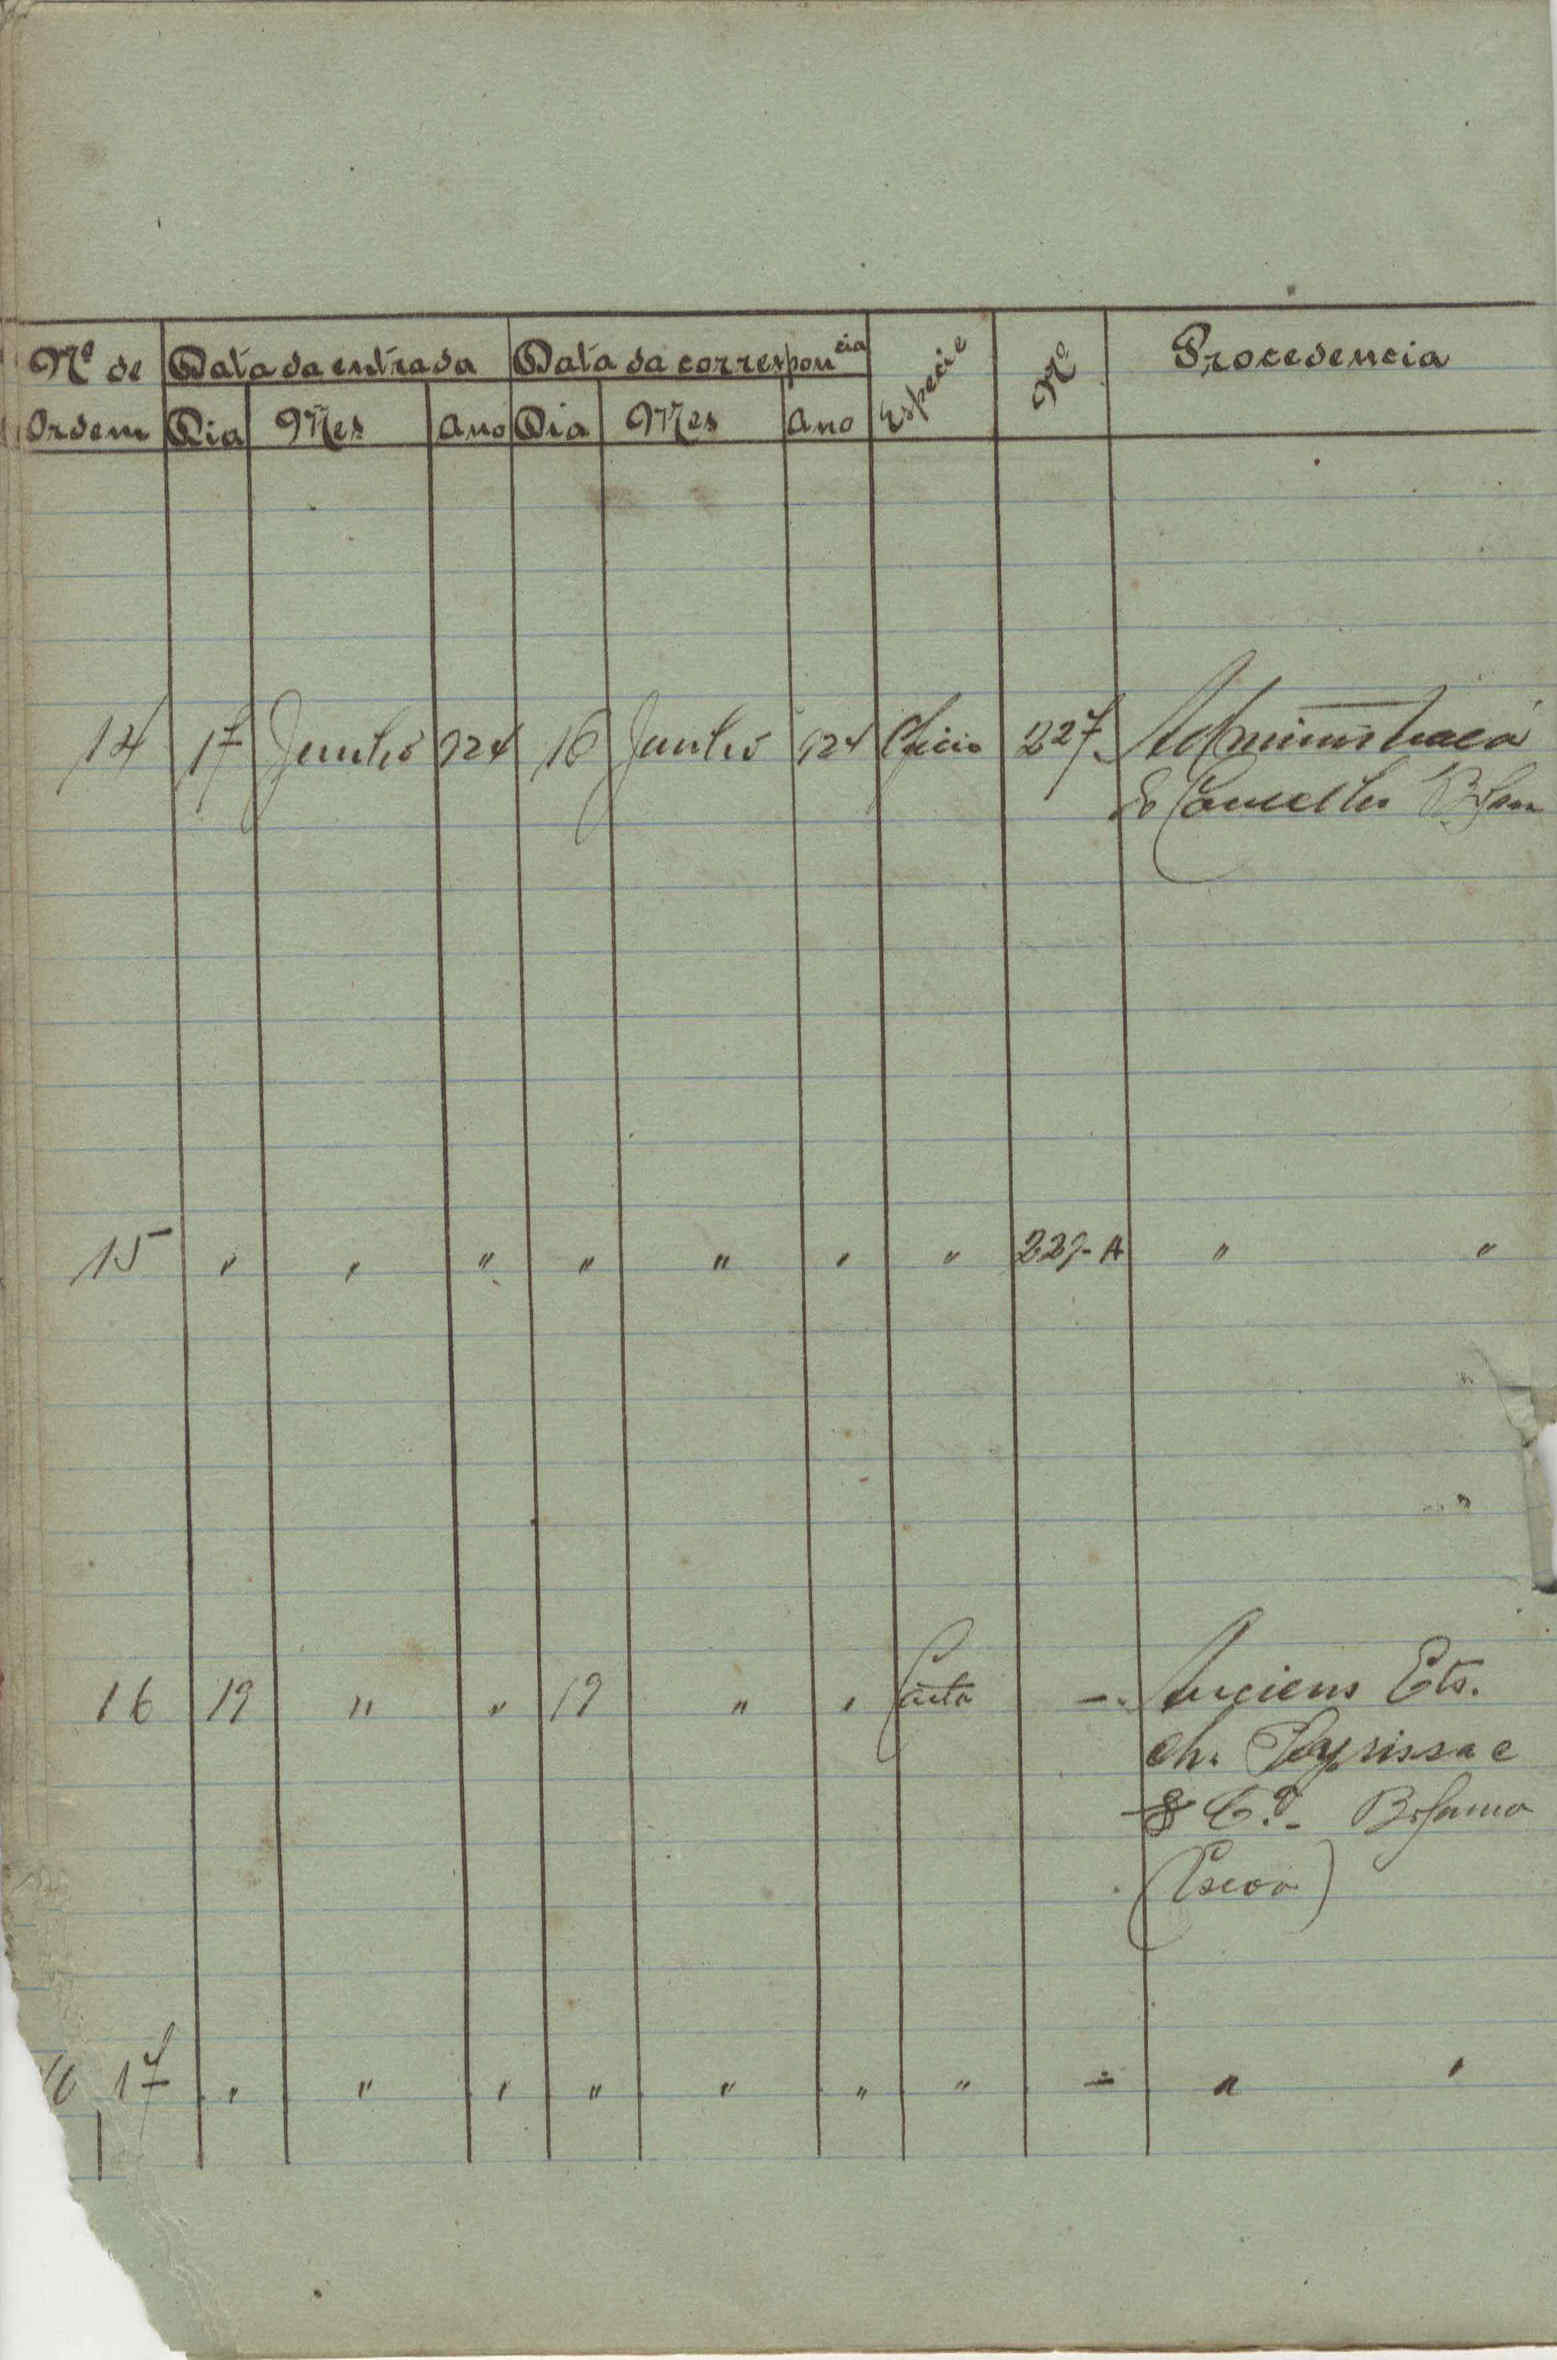 Nº de Data da entrada Data da correspon cia Especie Nº Procedencia
Ordem Dia Mes Ano Dia Mes Ano
14 17 Junho 924 16 Junho 924 Oficio 227 Administração
do Concelho Bissau
15 " " " " " " " 227-A " "
16 19 " " 19 " " Carta - Anciens Ets.
Ch. Peyrissac
& Cª - Bafama
17 " " " " " " " - " "